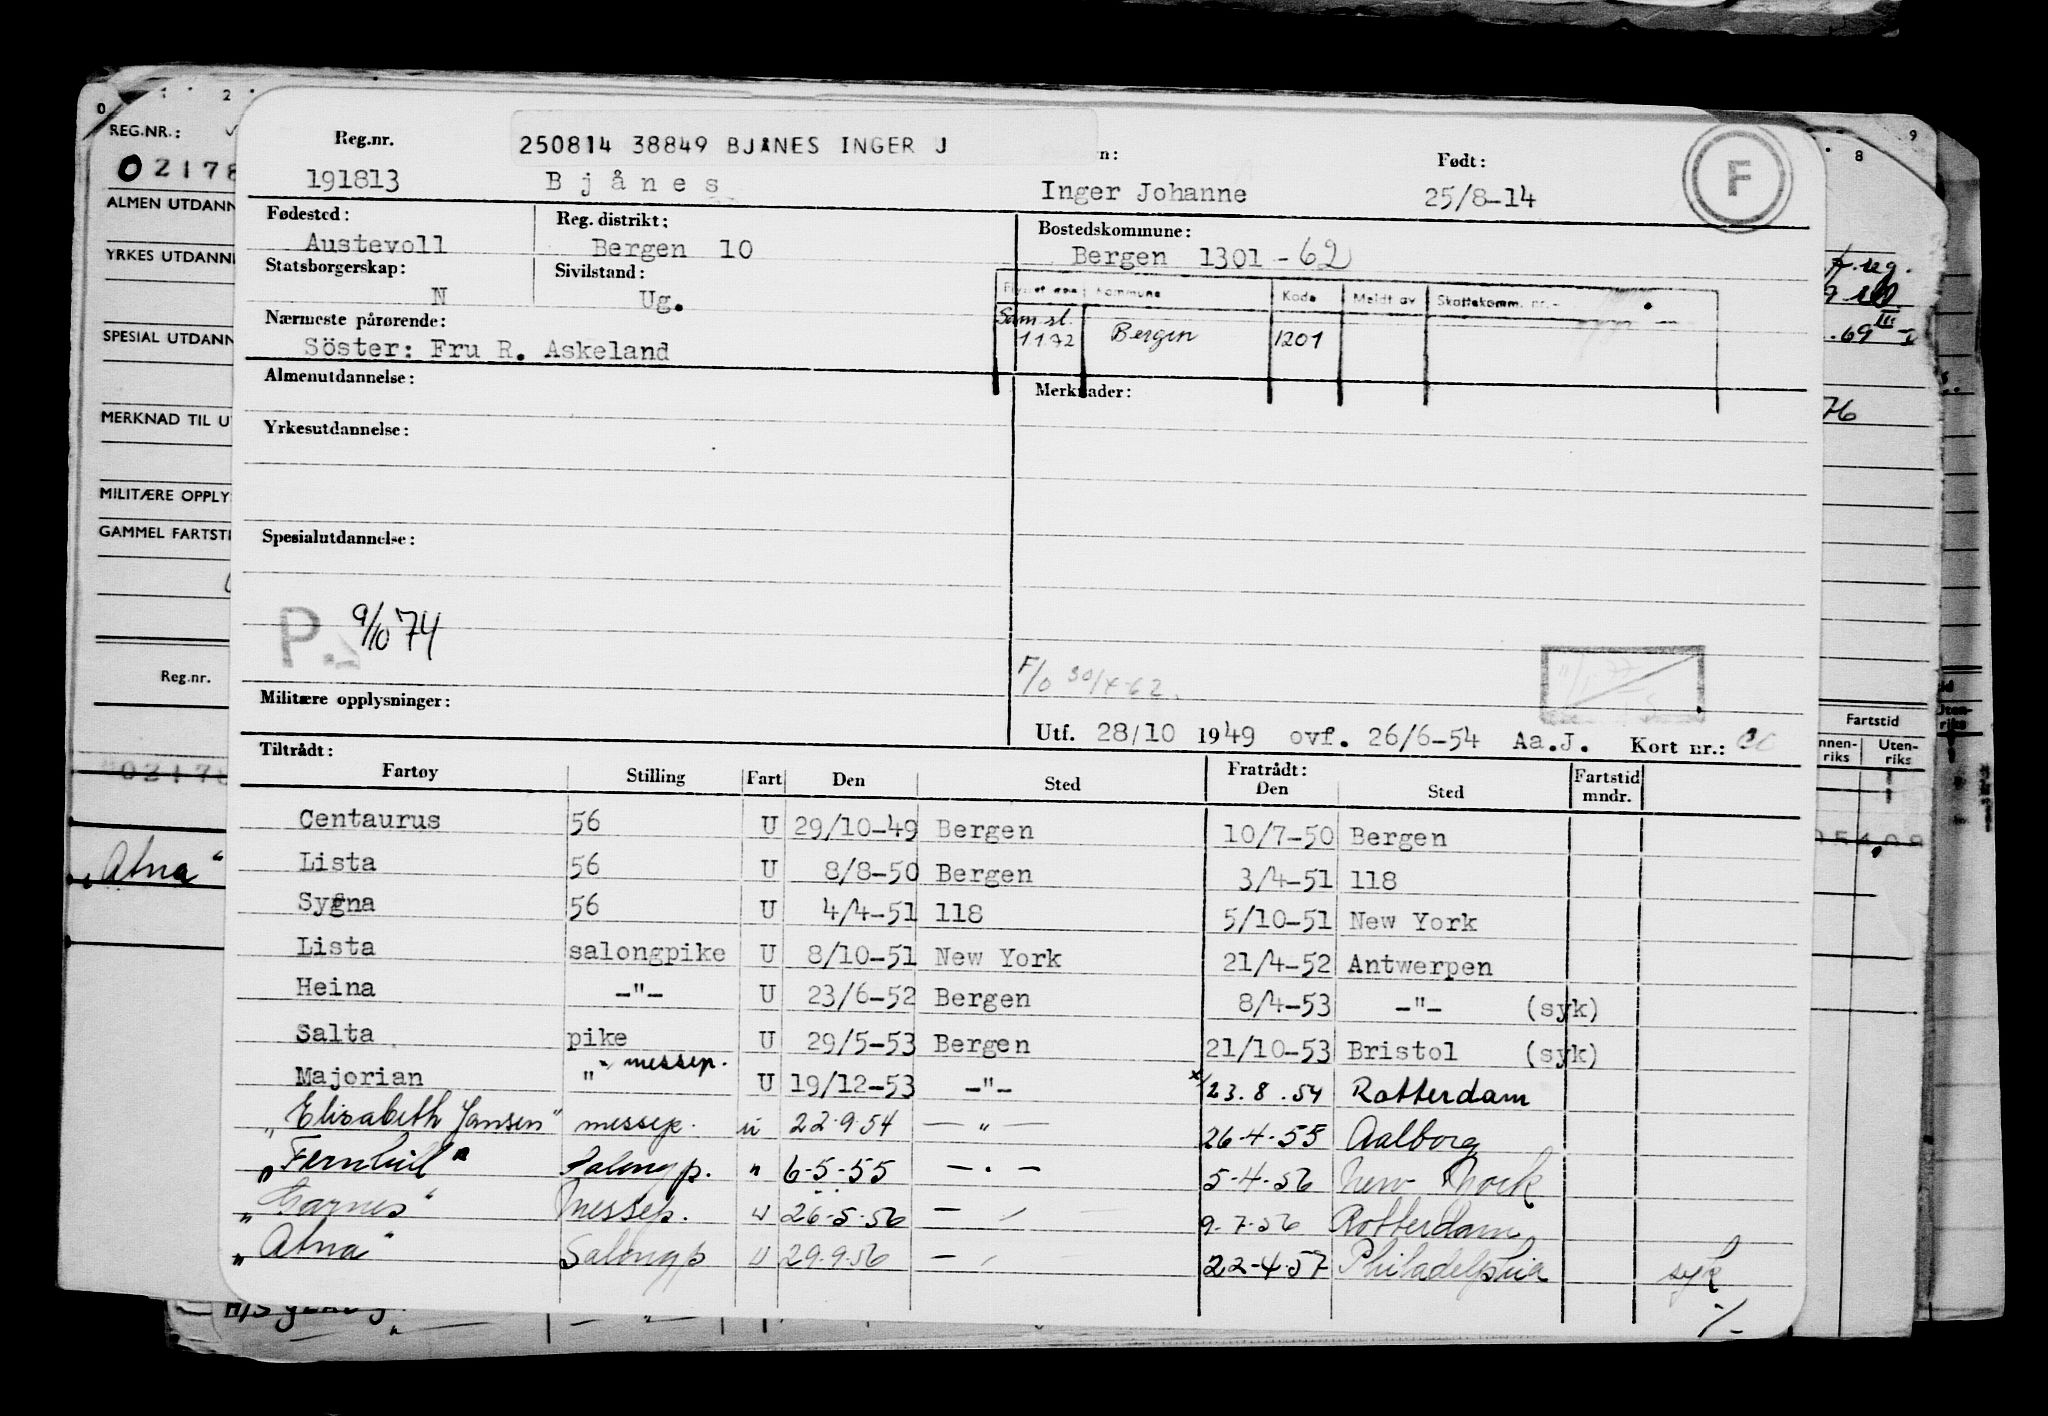 0 2 8 9
REG.NR.:
02178
ALMEN UTDANN
YRKES UTDANN
SPESIAL UTDANN
MERKNAD TIL U
MILITÆRE OPPLY
GAMMEL FARTSTI
Reg.nr.
02178
„Atna"
Reg.nr. 250814 38849 BJÅNES INGER J n: Født: F
191813 Bjånes Inger Johanne 25/8-14
Fødested: Reg. distrikt: Bostedskommune:
Austevoll Bergen 10 Bergen 1301 - 62
Statsborgerskap: Sivilstand:
N Ug.
Flyttet Kommune Kode Meldt av Skattekomm. nr.
Nærmeste pårørende: Sam.sl.
Söster: Fru R. Askeland 1172 Bergen 1201
Almenutdannelse: Merknader:
Yrkesutdannelse:
Spesialutdannelse:
P. 9/10 74
F/o 30/4-62.
Militære opplysninger: Utf. 28/10 1949 ovf. 26/6-54 Aa.J. Kort nr.:
Tiltrådt: Fratrådt:
Fartøy Stilling Fart Den Sted Den Sted Fartstid mndr.
Centaurus 56 U 29/10-49 Bergen 10/7-50 Bergen
Lista 56 U 8/8-50 Bergen 3/4-51 118
Sygna 56 U 4/4-51 118 5/10-51 New York
Lista salongpike U 8/10-51 New York 21/4-52 Antwerpen
Heina -"- U 23/6-52 Bergen 8/4-53 -"- (syk)
Salta pike U 29/5-53 Bergen 21/10-53 Bristol (syk)
Majorian " messep. U 19/12-53 -"- x/23.8.54 Rotterdam
„Elisabeth Jansen" messep. u 22.9.54 — " — 26-4-55 Aalborg
„Fernhill" Salongp. " 6-5-55 — " — 5-4-56 New York
„Garnes" Messep. u 26-5-56 — " — 9-7-56 Rotterdam
„Atna" Salongp u 29.9.56 — " — 22-4-57 Philadelphia syk
-/-
69 III
76
Fartstid
nnen-riks Uten-riks